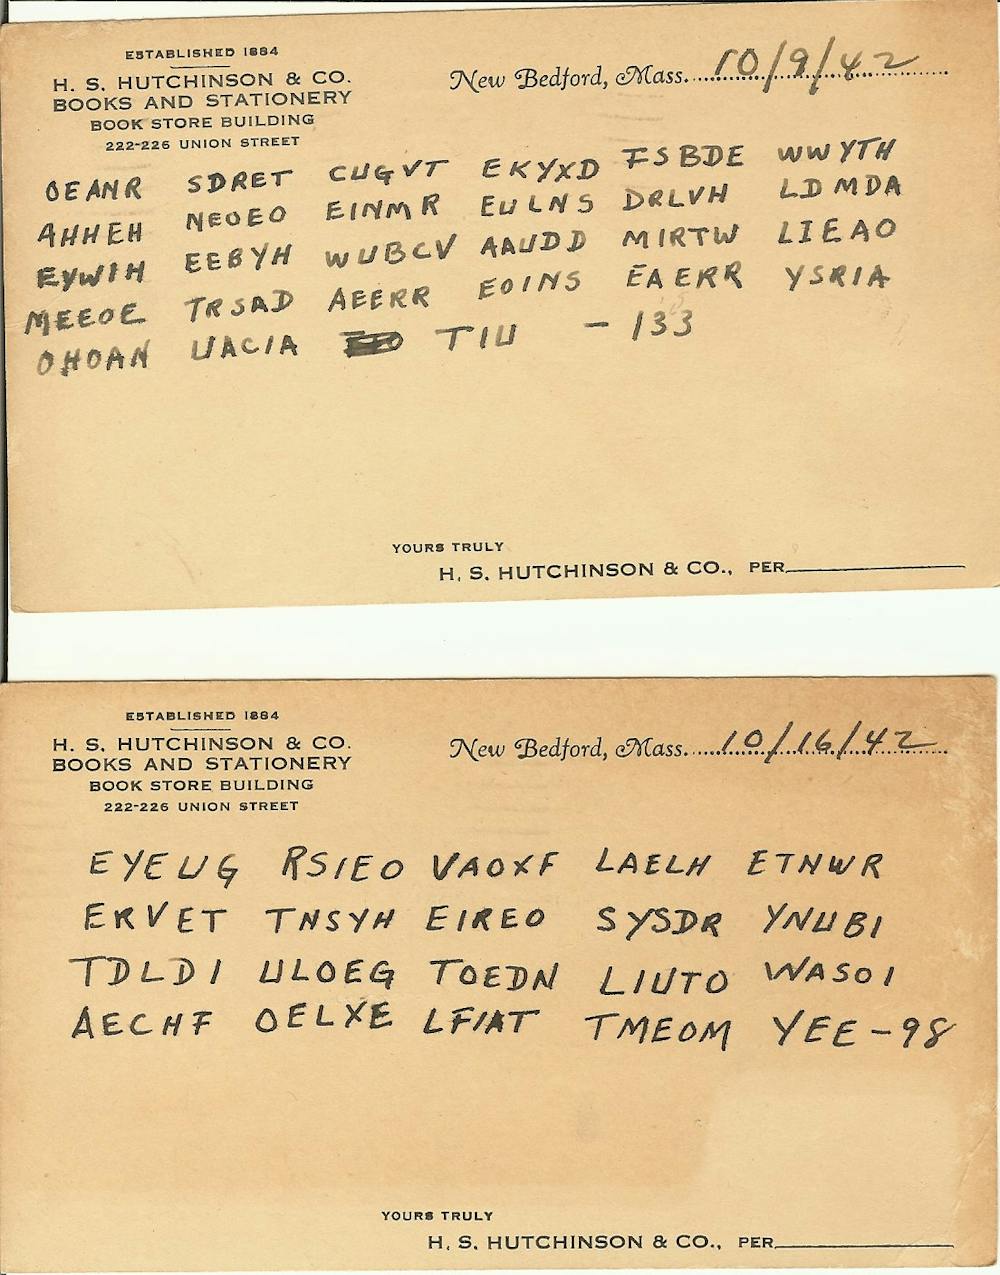 ESTABLISHED 1884
H. S. HUTCHINSON & CO.
BOOKS AND STATIONERY
BOOK STORE BUILDING
222-226 UNION STREET
New Bedford, Mass. 10/9/42
OEANR SDRET CUGVT EKYXD FSBDE WWYTH
AHHEH NEOEO EINMR EULNS DRLVH LDMDA
EYWIH EEBYH WUBCV AAUDD MIRTW LIEAO
MEEOE TRSAD AEERR EOINS EAERR YSRIA
OHOAN UACIA TIU - 133
YOURS TRULY
H. S. HUTCHINSON & CO., PER
ESTABLISHED 1884
H. S. HUTCHINSON & CO.
BOOKS AND STATIONERY
BOOK STORE BUILDING
222-226 UNION STREET
New Bedford, Mass. 10/16/42
EYEUG RSIEO VAOXF LAELH ETNWR
ERVET TNSYH EIREO SYSDR YNUBI
TDLDI ULOEG TOEDN LIUTO WASOI
AECHF OELXE LFIAT TMEOM YEE-98
YOURS TRULY
H. S. HUTCHINSON & CO., PER